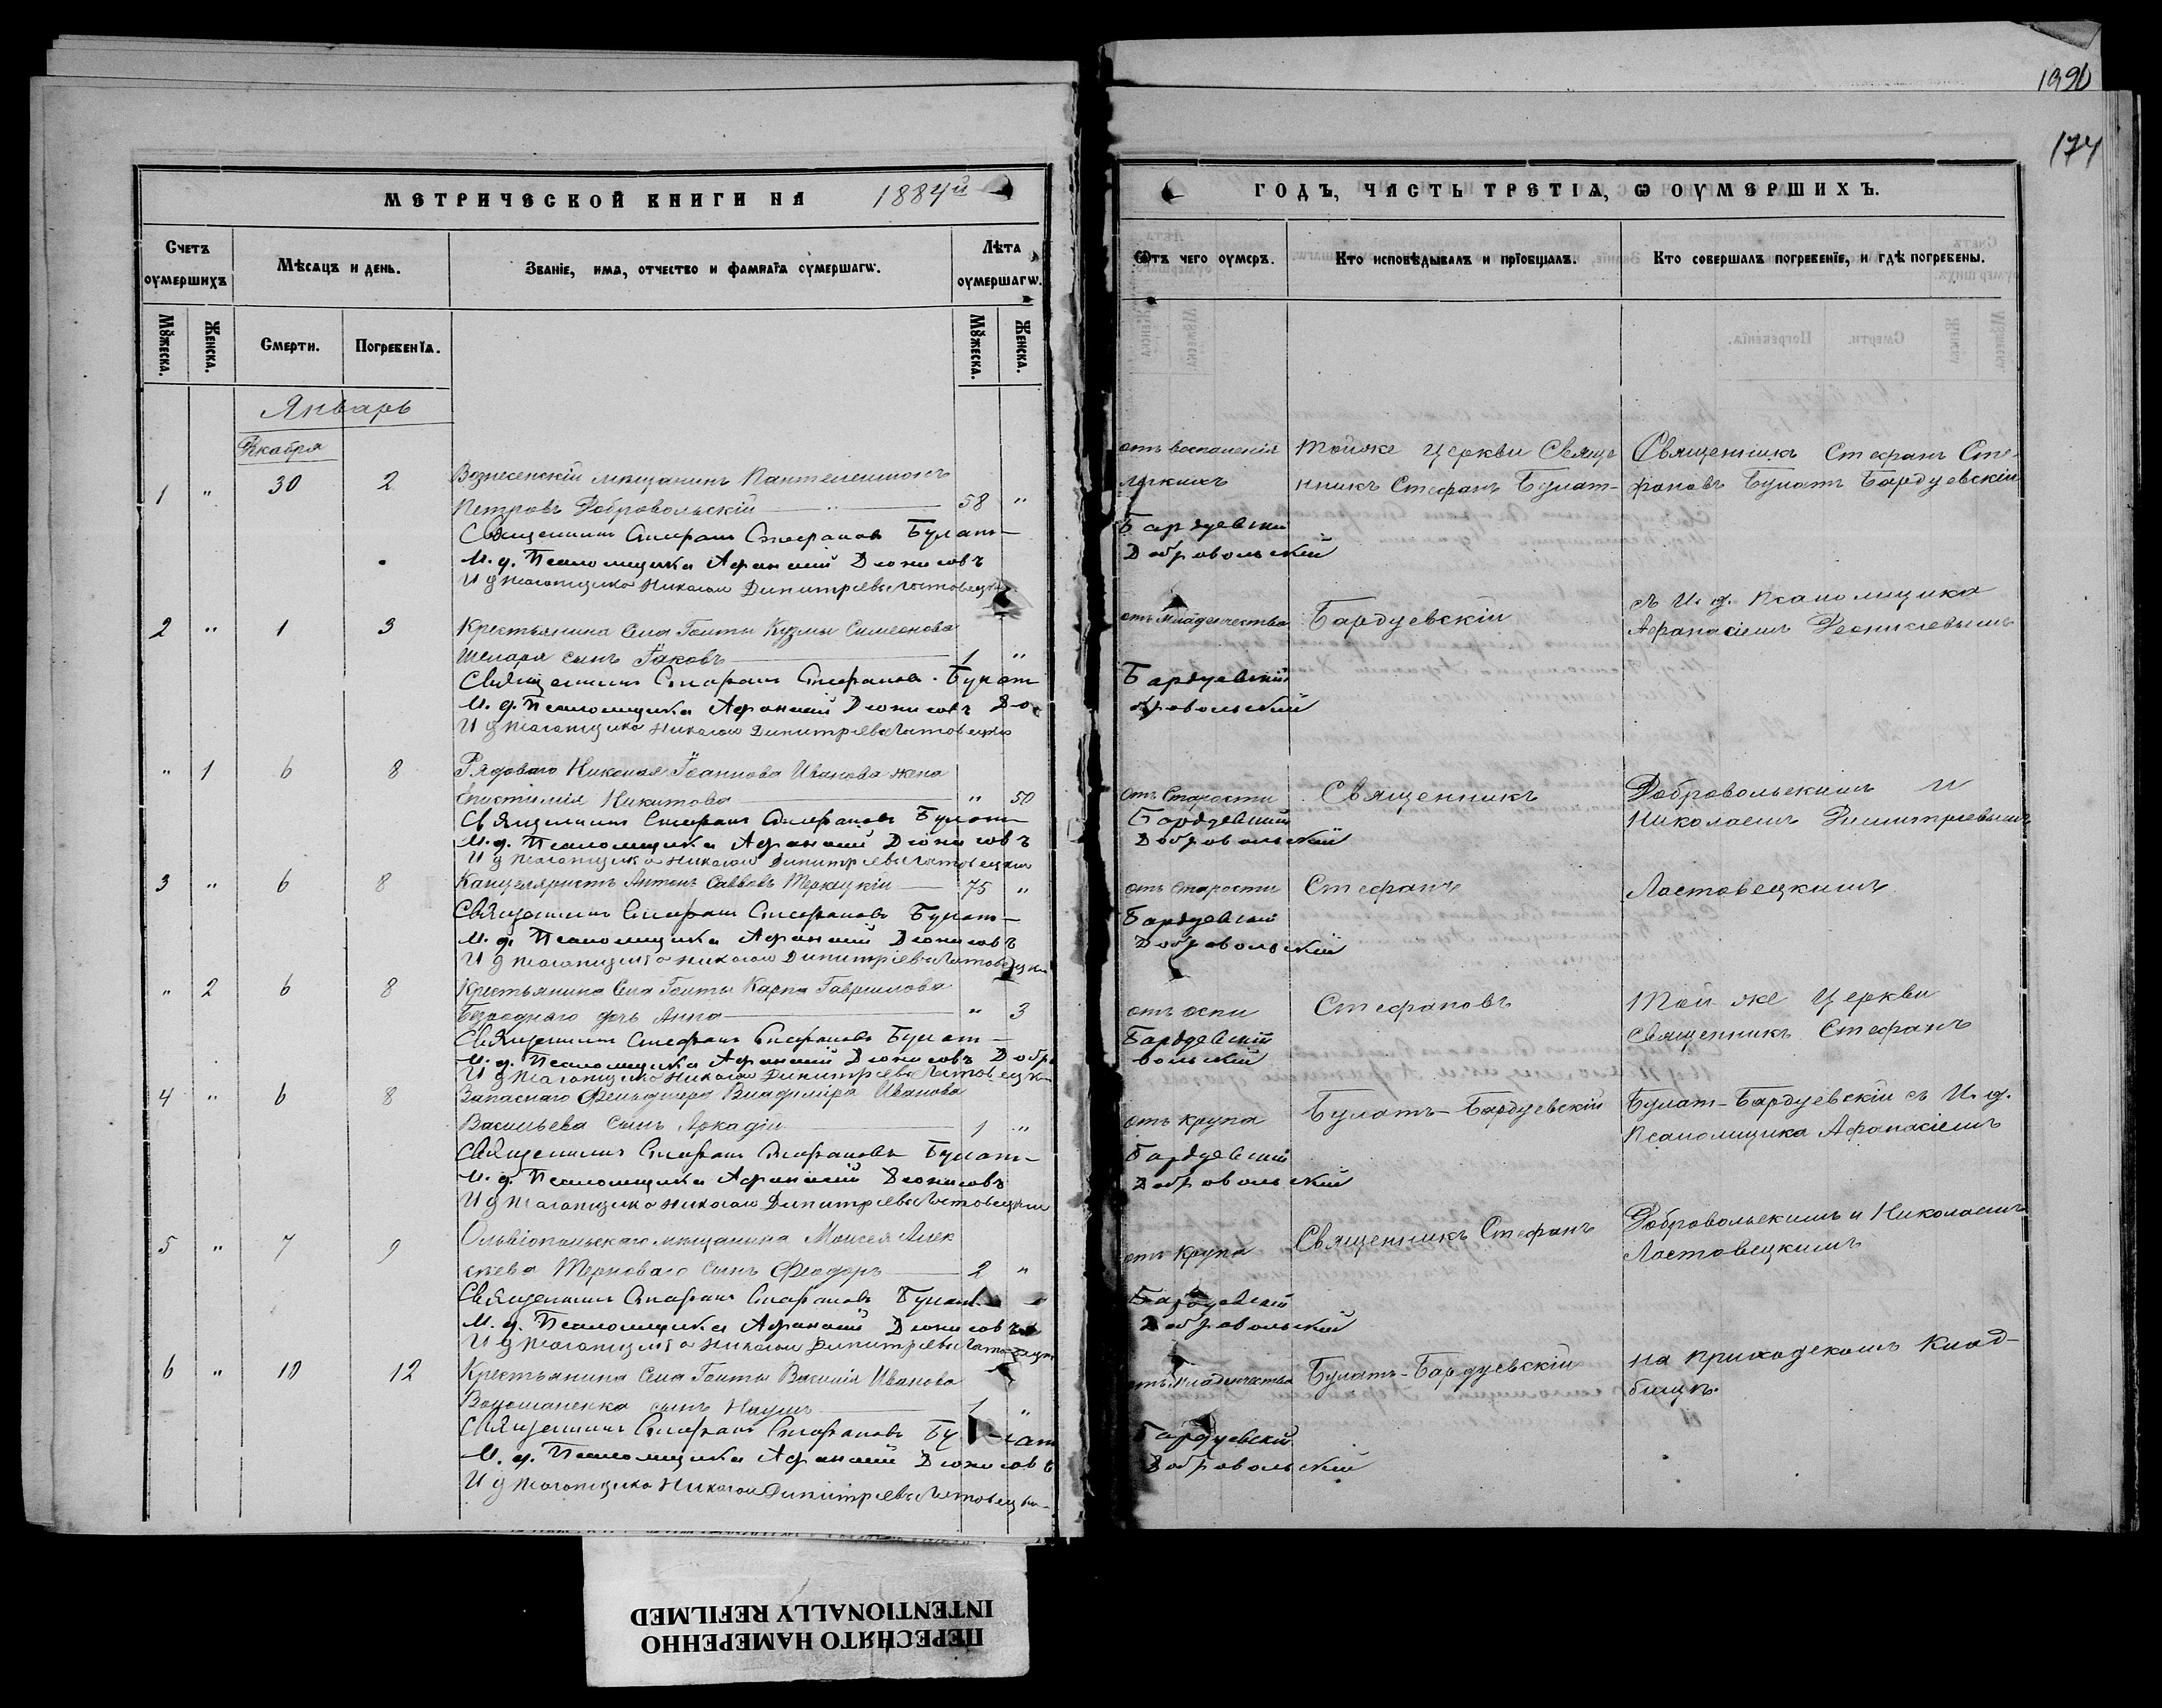 1990
174
МЕТРИЧЕСКОЙ КНИГИ НА 1884й
Счетъ оумершихъ
Мѣсяцъ и день.
Званіе, имя, отчество и фамиліа оумершагѡ.
Лѣта оумершагѡ.
Мꙋжеска.
Женска.
Смерти.
Погребеніѧ.
Мꙋжеска.
Женска.
Январь
Декабря
1 " 30 2 Вознесенскій мѣщанинъ Пантелеимонъ
Петровъ Добровольскій 58 "
Священникъ Стефанъ Стефановъ Булат-
И. д. Псаломщика Афанасій Дионисовъ
И д Псаломщика Николай Димитріевъ Ластовецкій
2 " 1 3 Крестьянина Села Голты Кузмы Симеонова
Шелара сынъ Іаковъ 1 "
Священникъ Стефанъ Стефановъ Булат
И. д. Псаломщика Афанасій Дионисовъ До
И д Псаломщика Николай Димитріевъ Ластовецкій
" 1 6 8 Рядоваго Николая Іоаннова Иванова жена
Епистимія Никитова " 50
Священникъ Стефанъ Стефановъ Булат-
И. д. Псаломщика Афанасій Дионисовъ
И д Псаломщика Николай Димитріевъ Ластовецкій
3 " 6 8 Канцеляристъ Антонъ Саввовъ Терлецкій 75 "
Священникъ Стефанъ Стефановъ Булат-
И. д. Псаломщика Афанасій Дионисовъ
И д Псаломщика Николай Димитріевъ Ластовецкій
" 2 6 8 Крестьянина Села Голты Карпа Гаврилова
Безроднаго дочь Анна " 3
Священникъ Стефанъ Стефановъ Булат-
И. д. Псаломщика Афанасій Дионисовъ Добро
И д Псаломщика Николай Димитріевъ Ластовецк
4 " 6 8 Запаснаго Фельдшера Владиміра Иванова
Васильева сынъ Аркадій 1 "
Священникъ Стефанъ Стефановъ Булат-
И. д. Псаломщика Афанасій Дионисовъ
И д Псаломщика Николай Димитріевъ Ластовецкій
5 " 7 9 Ольвіопольскаго мѣщанина Моисея Алек
сѣева Терноваго сынъ Феодоръ 2 "
Священникъ Стефанъ Стефановъ Булат-
И. д. Псаломщика Афанасій Дионисовъ
И д Псаломщика Николай Димитріевъ Ластовецк
6 " 10 12 Крестьянина Села Голты Василія Иванова
Волошаненка сынъ Наумъ 1 "
Священникъ Стефанъ Стефановъ Булат
И. д. Псаломщика Афанасій Дионисовъ
И д Псаломщика Николай Димитріевъ Ластовецки
ГОДЪ, ЧАСТЬ ТРЕТІѦ, Ѡ ОУМЕРШИХЪ.
Ѿтъ чего оумеръ.
Кто исповѣдывалъ и пріобщалъ.
Кто совершалъ погребеніе, и гдѣ погребены.
отъ воспаленія Тойже Церкви Свяще Священникъ Стефанъ Сте-
легкихъ нникъ Стефанъ Булат- фановъ Булатъ Бардуевскій
Бардуевскій
Добровольскій
отъ младенчества Бардуевскій съ И. д. Псаломщика
Афанасіемъ Деонисіевымъ
Бардуевскій
бровольскій
отъ старости Священникъ Добровольскимъ и
Бардуевскій Николаемъ Димитріевымъ
Добровольскій
отъ старости Стефанъ Ластовецкимъ
Бардуевскій
Добровольскій
отъ оспи Стефановъ Той же Церкви
Бардуевскій Священникъ Стефанъ
вольскій
отъ крупа Булатъ-Бардуевскій Булат-Бардуевскій съ И. д.
Псаломщика Афанасіемъ
Бардуевскій
Добровольскій
отъ крупа Священникъ Стефанъ Добровольскимъ и Николаемъ
Ластовецкимъ
Бардуевскій
Добровольскій
отъ младенчества Булатъ-Бардуевскій на приходскомъ клад-
бищѣ.
Бардуевскій
Добровольскій
ПЕРЕСНЯТО НАМЕРЕННО
INTENTIONALLY REFILMED